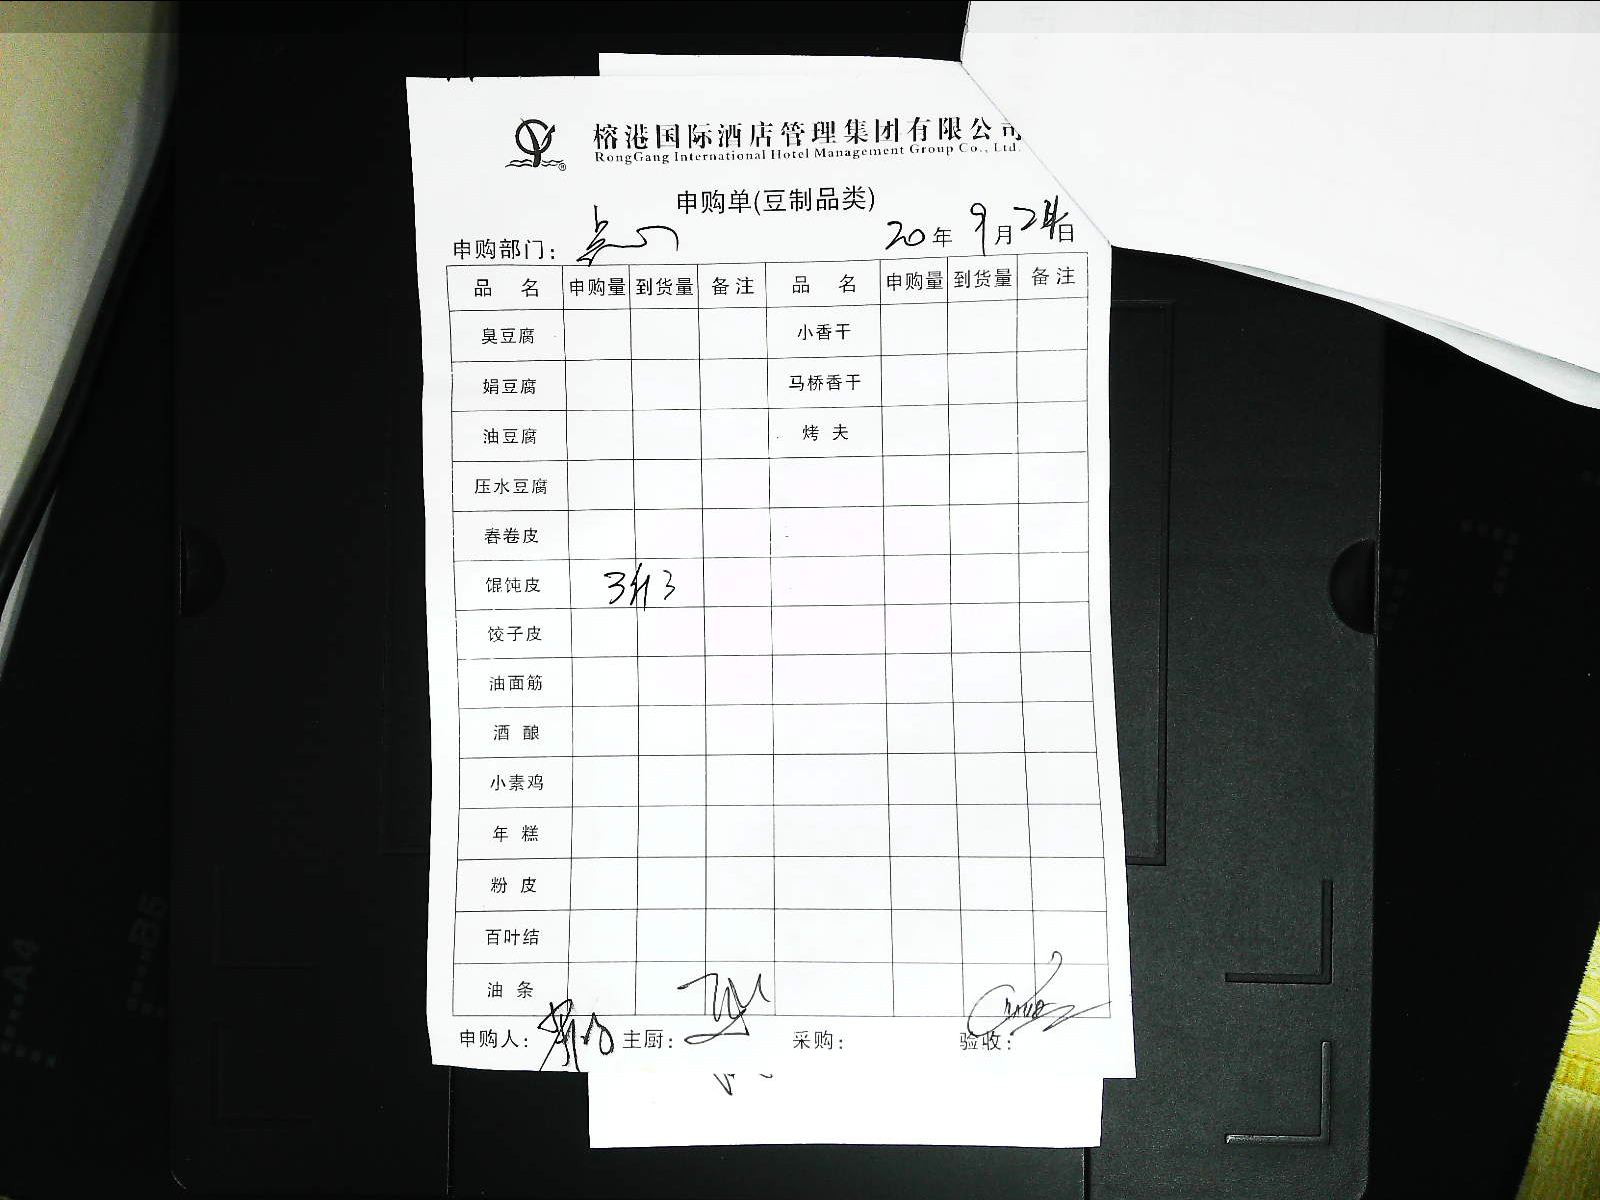 榕港国际酒店管理集团有限公司
RongGang International Hotel Management Group Co., Ltd.
申购单(豆制品类)
申购部门: 点心 20年9月24日
品 名 申购量 到货量 备注 品 名 申购量 到货量 备注
臭豆腐 小香干
娟豆腐 马桥香干
油豆腐 烤 夫
压水豆腐
春卷皮
馄饨皮 3斤 3
饺子皮
油面筋
酒 酿
小素鸡
年 糕
粉 皮
百叶结
油 条
申购人: 主厨: 采购: 验收:
A4
B5